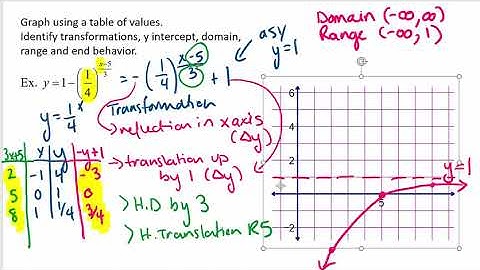 Graph using a table of values.
Identify transformations, y intercept, domain,
range and end behavior.
Ex. y = 1 − (1/4)^((x−5)/3) = −(1/4)^((x−5)/3) + 1
asy
y=1
Domain (-∞,∞)
Range (-∞, 1)
y = 1/4^x
Transformation
> reflection in x axis
(Δy)
→ translation up
by 1 (Δy)
> H.D by 3
> H. Translation R5
3x+5 x y -y+1
2 -1 4 -3
5 0 1 0
8 1 1/4 3/4
6
4
2
-2
5
y=1